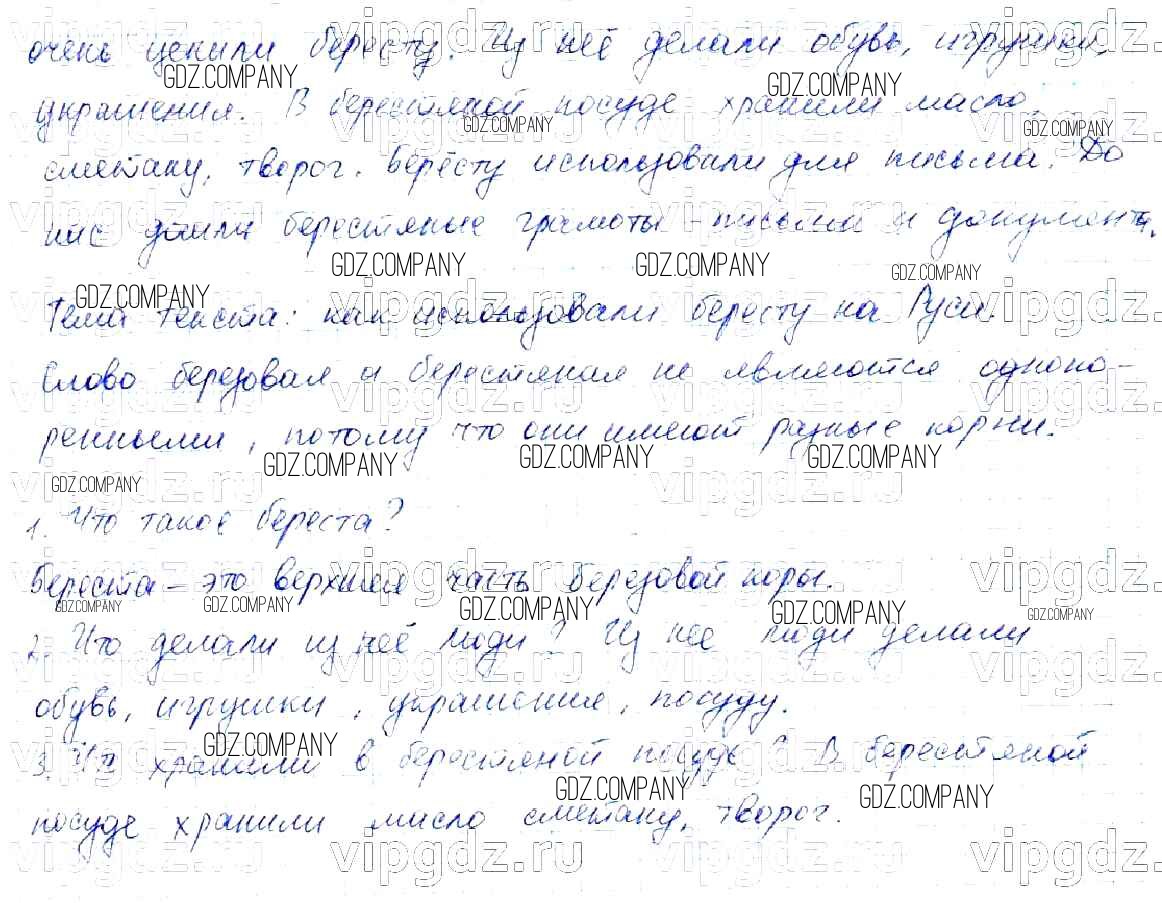 очень ценили бересту. Из неё делали обувь, игрушки,
украшения. В берестяной посуде хранили масло,
сметану, творог. Берёсту использовали для письма. До
нас дошли берестяные грамоты - письма и документы.
Тема текста: как использовали бересту на Руси.
Слово березовая и берестяная не являются одноко-
ренными, потому что они имеют разные корни.
1. Что такое береста?
Береста - это верхняя часть березовой коры.
2. Что делали из неё люди? Из нее люди делали
обувь, игрушки, украшения, посуду.
3. Что хранили в берестяной посуде? В берестяной
посуде хранили масло сметану, творог.
GDZ.COMPANY
vipgdz.ru